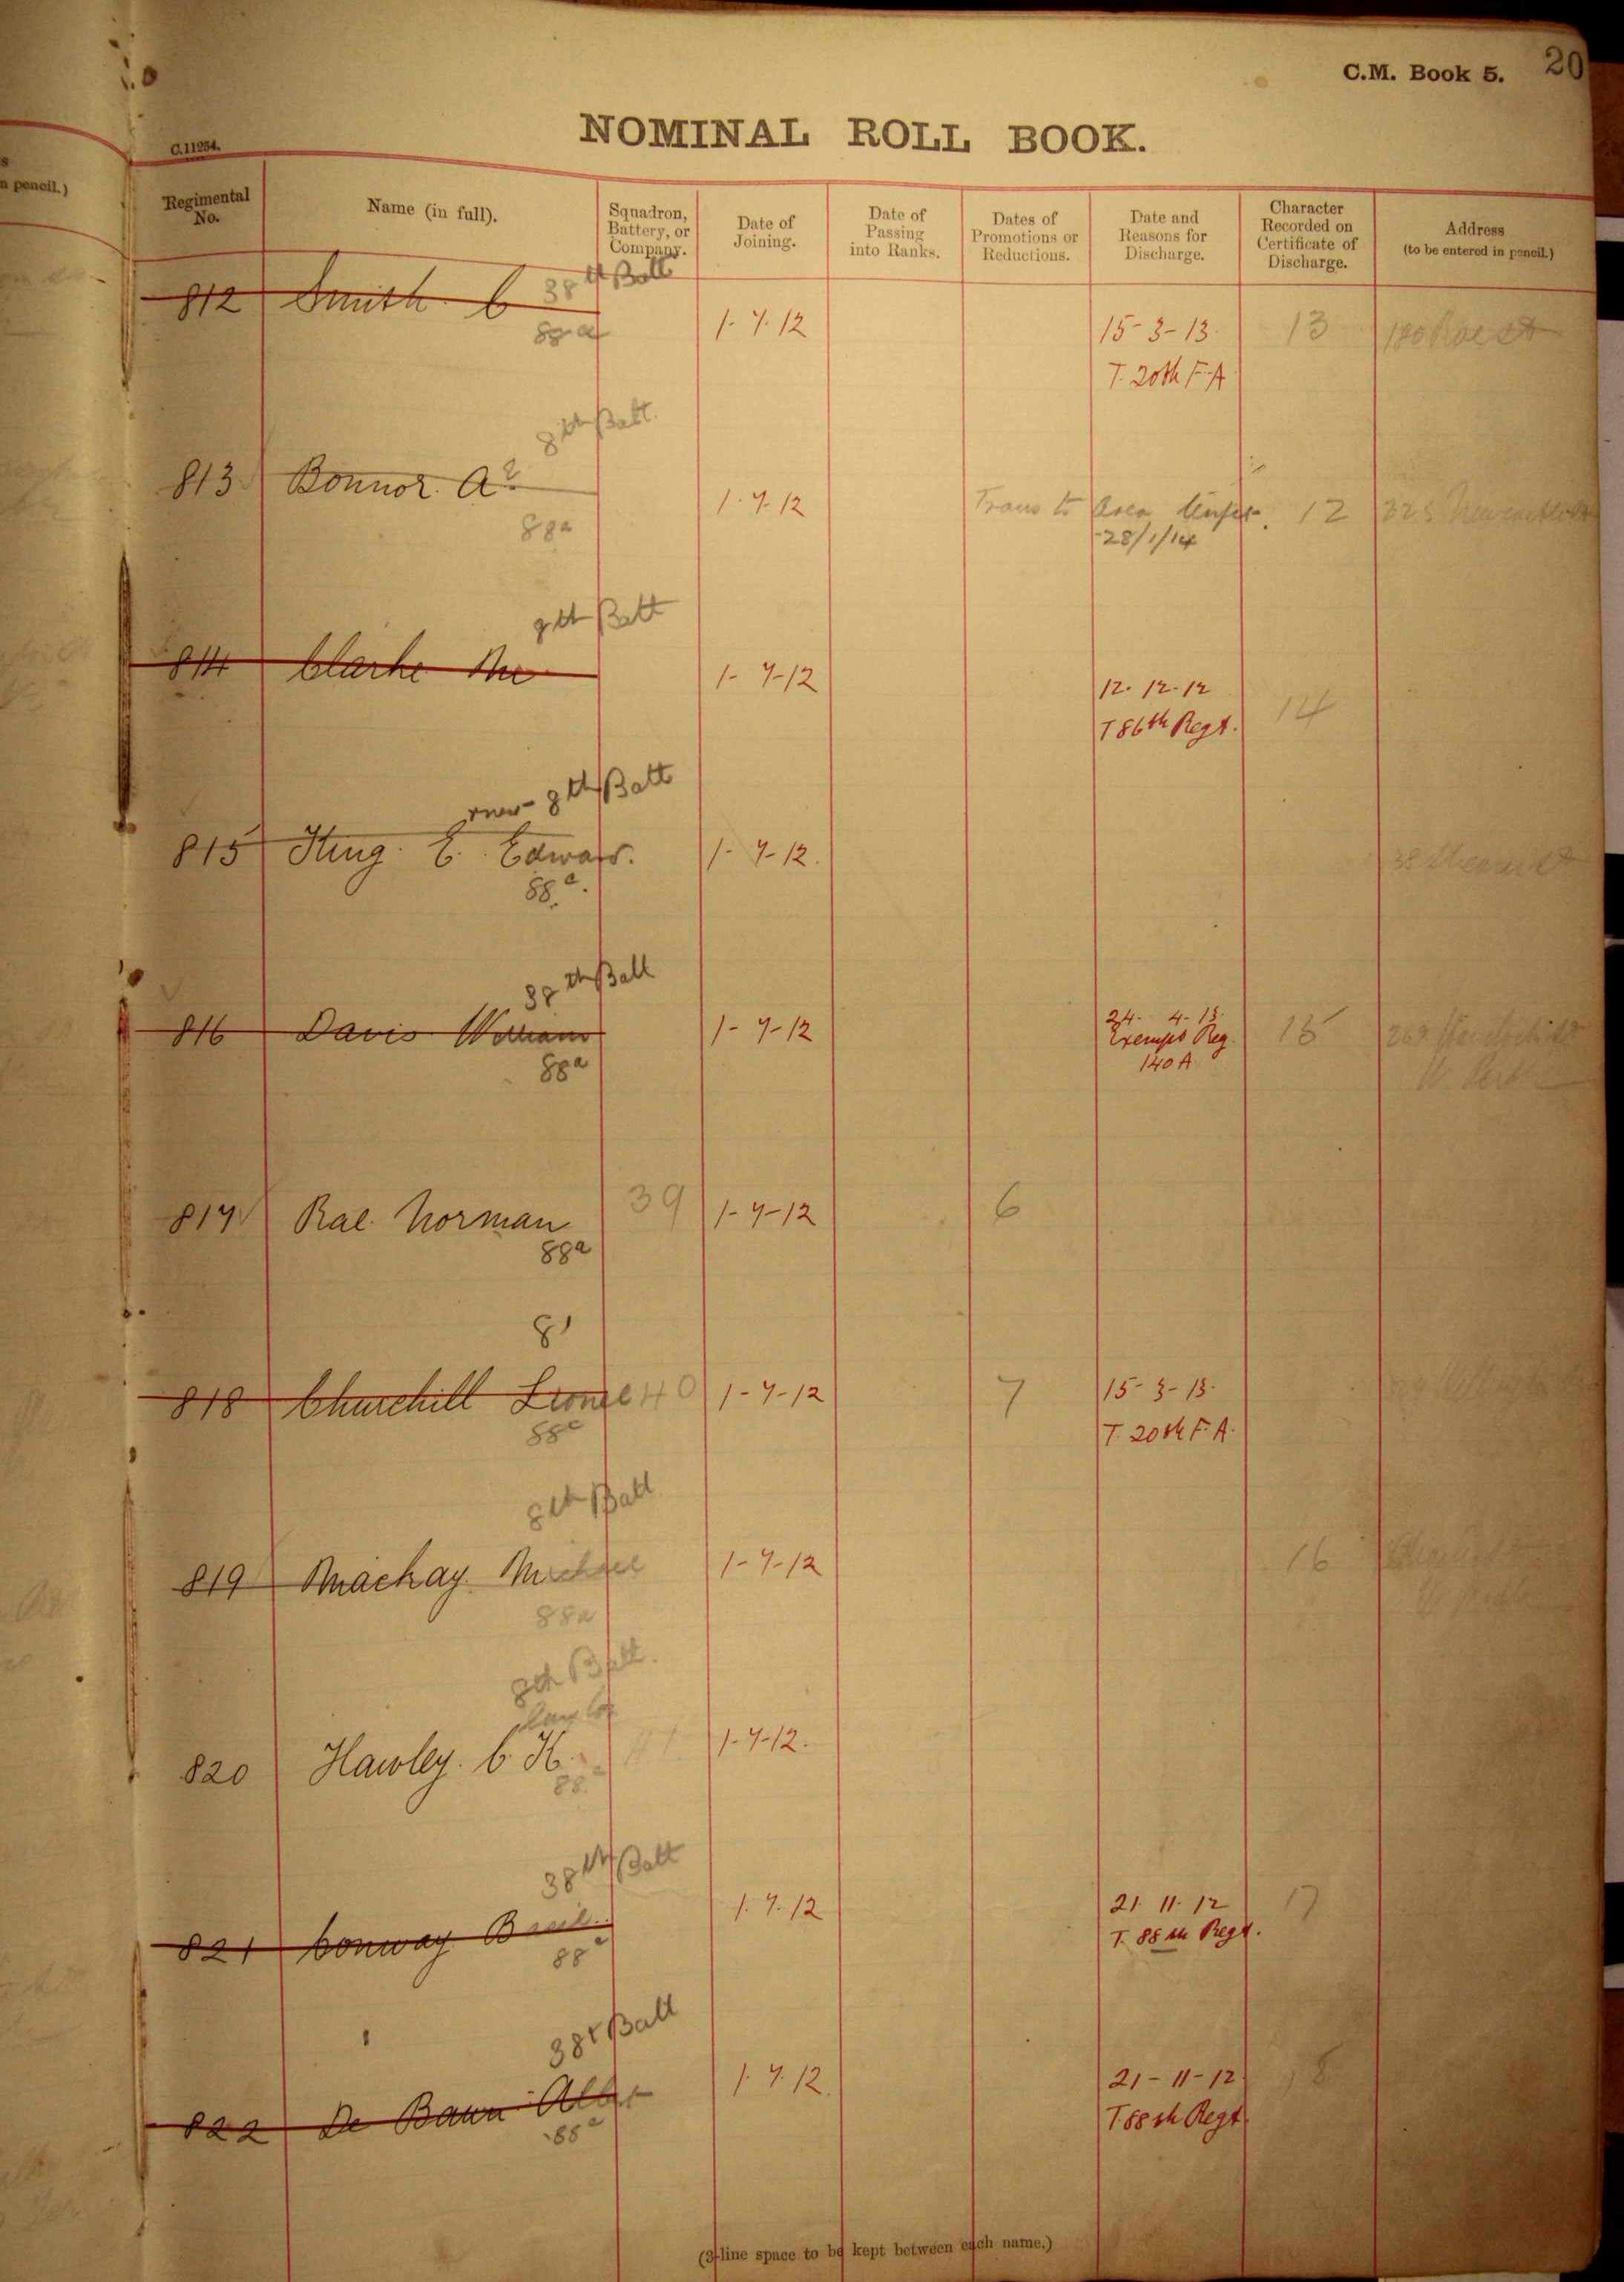 C.M. Book 5. 20
NOMINAL ROLL BOOK.
C.11254.
s
n pencil.)
Regimental No.
Name (in full).
Squadron, Battery, or Company.
Date of Joining.
Date of Passing into Ranks.
Dates of Promotions or Reductions.
Date and Reasons for Discharge.
Character Recorded on Certificate of Discharge.
Address (to be entered in pencil.)
38th Batt
812 Smith. C 1. 7. 12 15-3-13. 13
88a T. 20th F.A
8th Batt.
813 Bonnor. A 1. 7. 12 Trans to Area 12
88a 28/1/14
9th Batt
814 Clarke 1-7-12 12. 12. 12 14
T 86th Regt.
8th Batt
815 King. E. Edward. 1-7-12.
88a.
38th Batt
816 Davis William 1-7-12 24. 4. 13. 15
88a Exempt Reg.
140 A
817 Rae. Norman 39 1-7-12 6
88a
8
818 Churchill Lionel 40 1-7-12 7 15-3-13.
88a T. 20th F. A.
8th Batt
819 Mackay. Michael 1-7-12 16
88a
8th Batt.
820 Hawley. C. H. 1-7-12.
88
38th Batt
821 Conway B 1. 7. 12 21. 11. 12 17
88a T. 88th Regt.
38t Batt
822 De Baun Albert 1. 7. 12. 21-11-12 18
88a T. 88th Regt.
(3-line space to be kept between each name.)